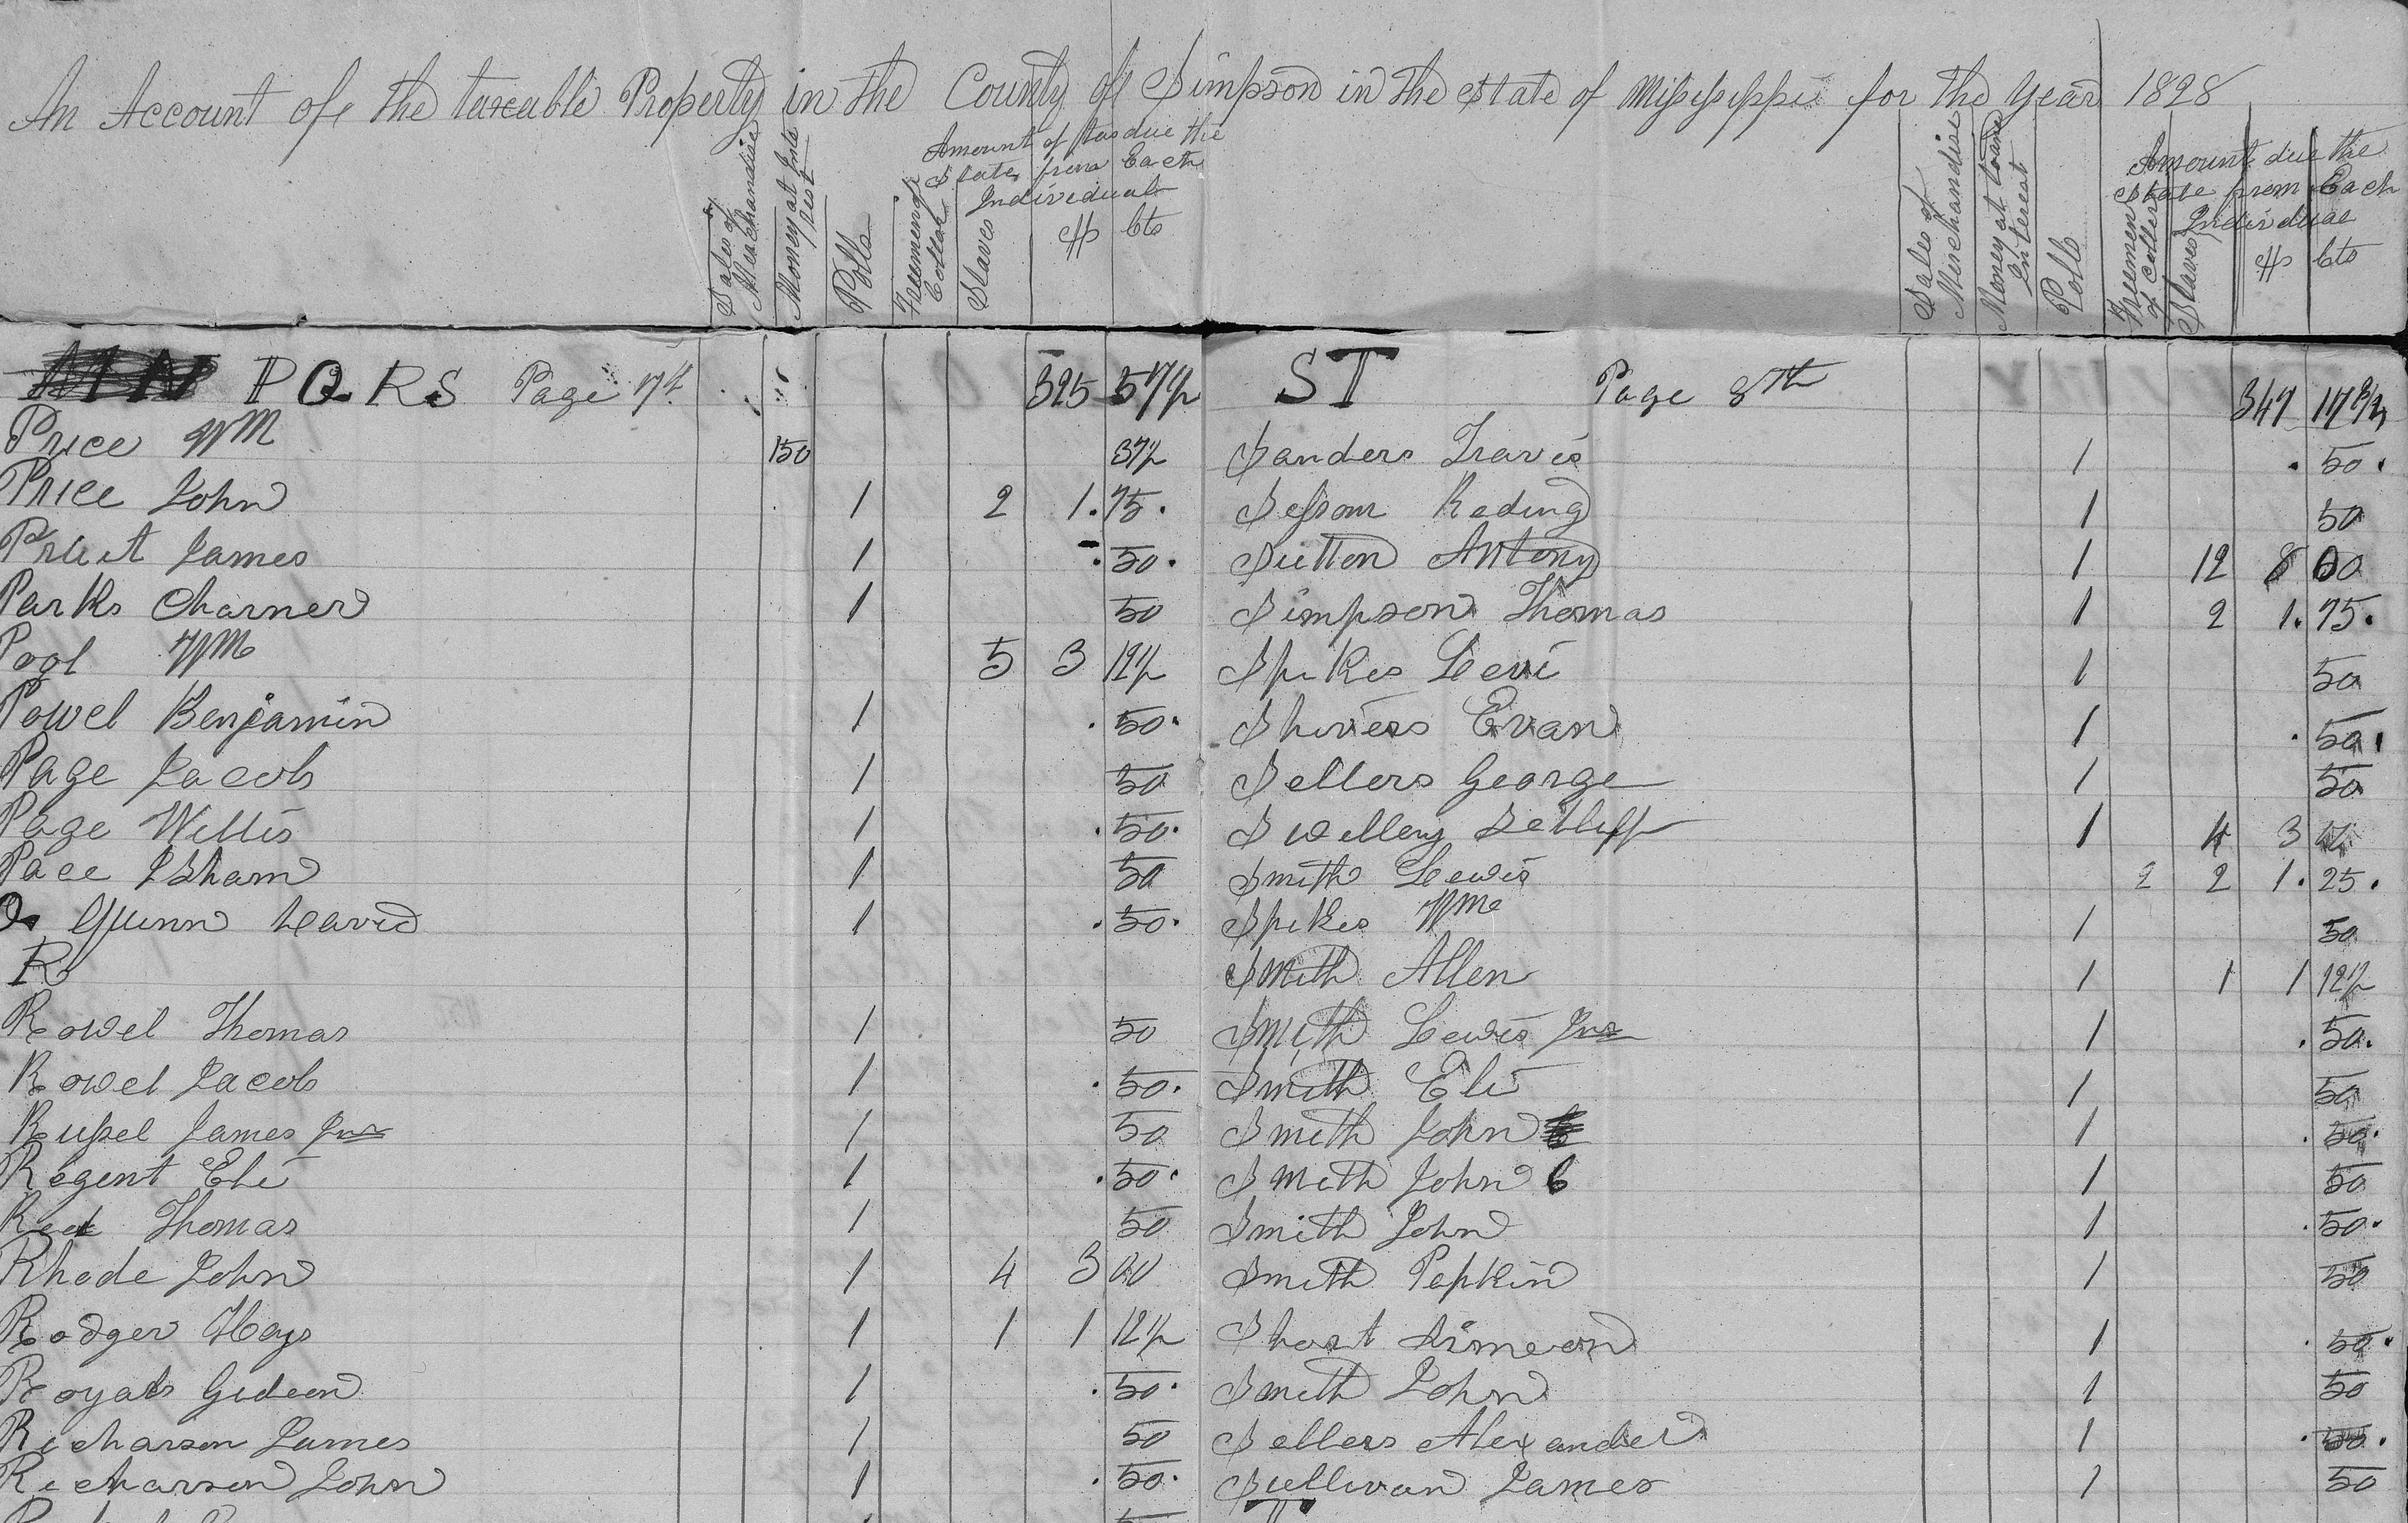 An Account of the taxeable Property in the County of Simpson in the State of Missisippi for the Year 1828
Sales of Merchandise
Money at Interest
Polls
Freemen of Collor
Slaves
Amount of tax due the State from Each Individual
$ Cts
Sales of Merchandise
Money at loand Interest
Polls
Freemen of Coller
Slaves
Amount due the State from Each Individual
$ Cts
P Q R S Page 7th 325 57½
Price Wm 150 37½
Price John 1 2 1.75.
Pruit James 1 .50.
Parks Charner 1 50
Pool Wm 5 3 12½
Powel Benjamin 1 .50.
Page Jacob 1 50
Page Willis 1 .50.
Pace Isham 1 50
Q Guinn David 1 .50.
R
Rowel Thomas 1 50
Rowel Jacob 1 .50.
Russel James Jnr 1 50
Regent Eli 1 .50.
Reed Thomas 1 50
Rhode John 1 4 3 00
Rodger Hays 1 1 1 12½
Royals Gideon 1 .50.
Richarson James 1 50
Richarson John 1 .50.
S T Page 8th 347 17½
Sanders Travis 1 .50.
Sessom Reding 1 50
Sutton Antony 1 12 8 00
Simpson Thomas 1 2 1.75.
Spikes Levi 1 50
Shivers Evan 1 .50.
Sellers George 1 50
Swilley 1 4 3
Smith Lewis 2 2 1.25.
Spikes Wm 1 50
Smith Allen 1 1 1 12½
Smith Lewis Jnr 1 .50.
Smith Eli 1 50
Smith John 1 .50.
Smith John C 1 50
Smith John 1 .50.
Smith Popkin 1 50
Short Simeon 1 .50.
Smith John 1 50
Sellers Alexander 1 .50.
Sullivan James 1 50